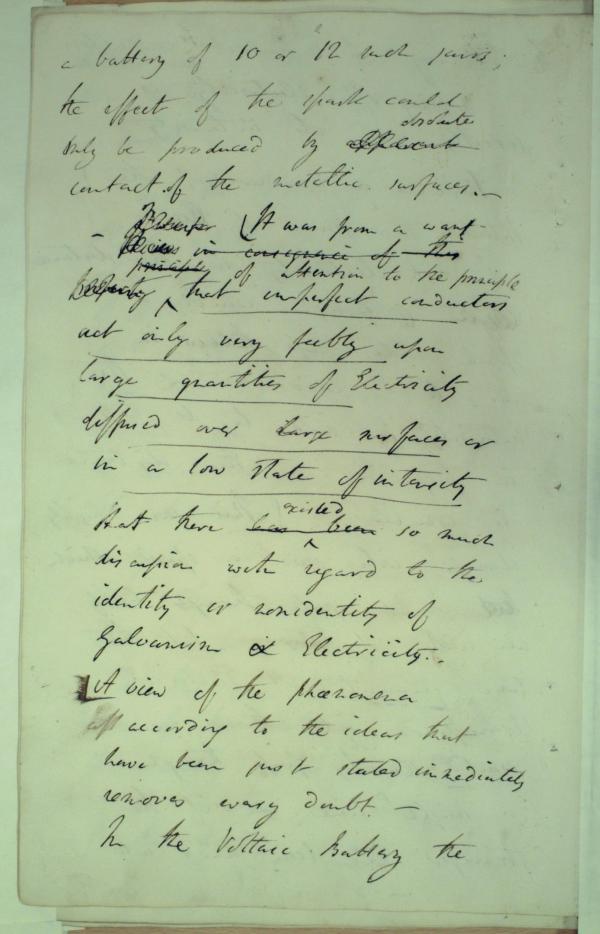 a battery of 10 or 12 such pairs;
the effect of the spark could
only be produced by absolute
contact of the metallic surfaces.—
— It was from a want
in consequence of this
principle of attention to the principle
that imperfect conductors
act only very feebly upon
large quantities of Electricity
diffused over large surfaces or
in a low state of intensity
that there has been existed so much
discussion with regard to the
identity or nonidentity of
Galvanism & Electricity.
A view of the phænomena
according to the ideas that
have been just stated immediately
removes every doubt. —
In the Voltaic Battery the